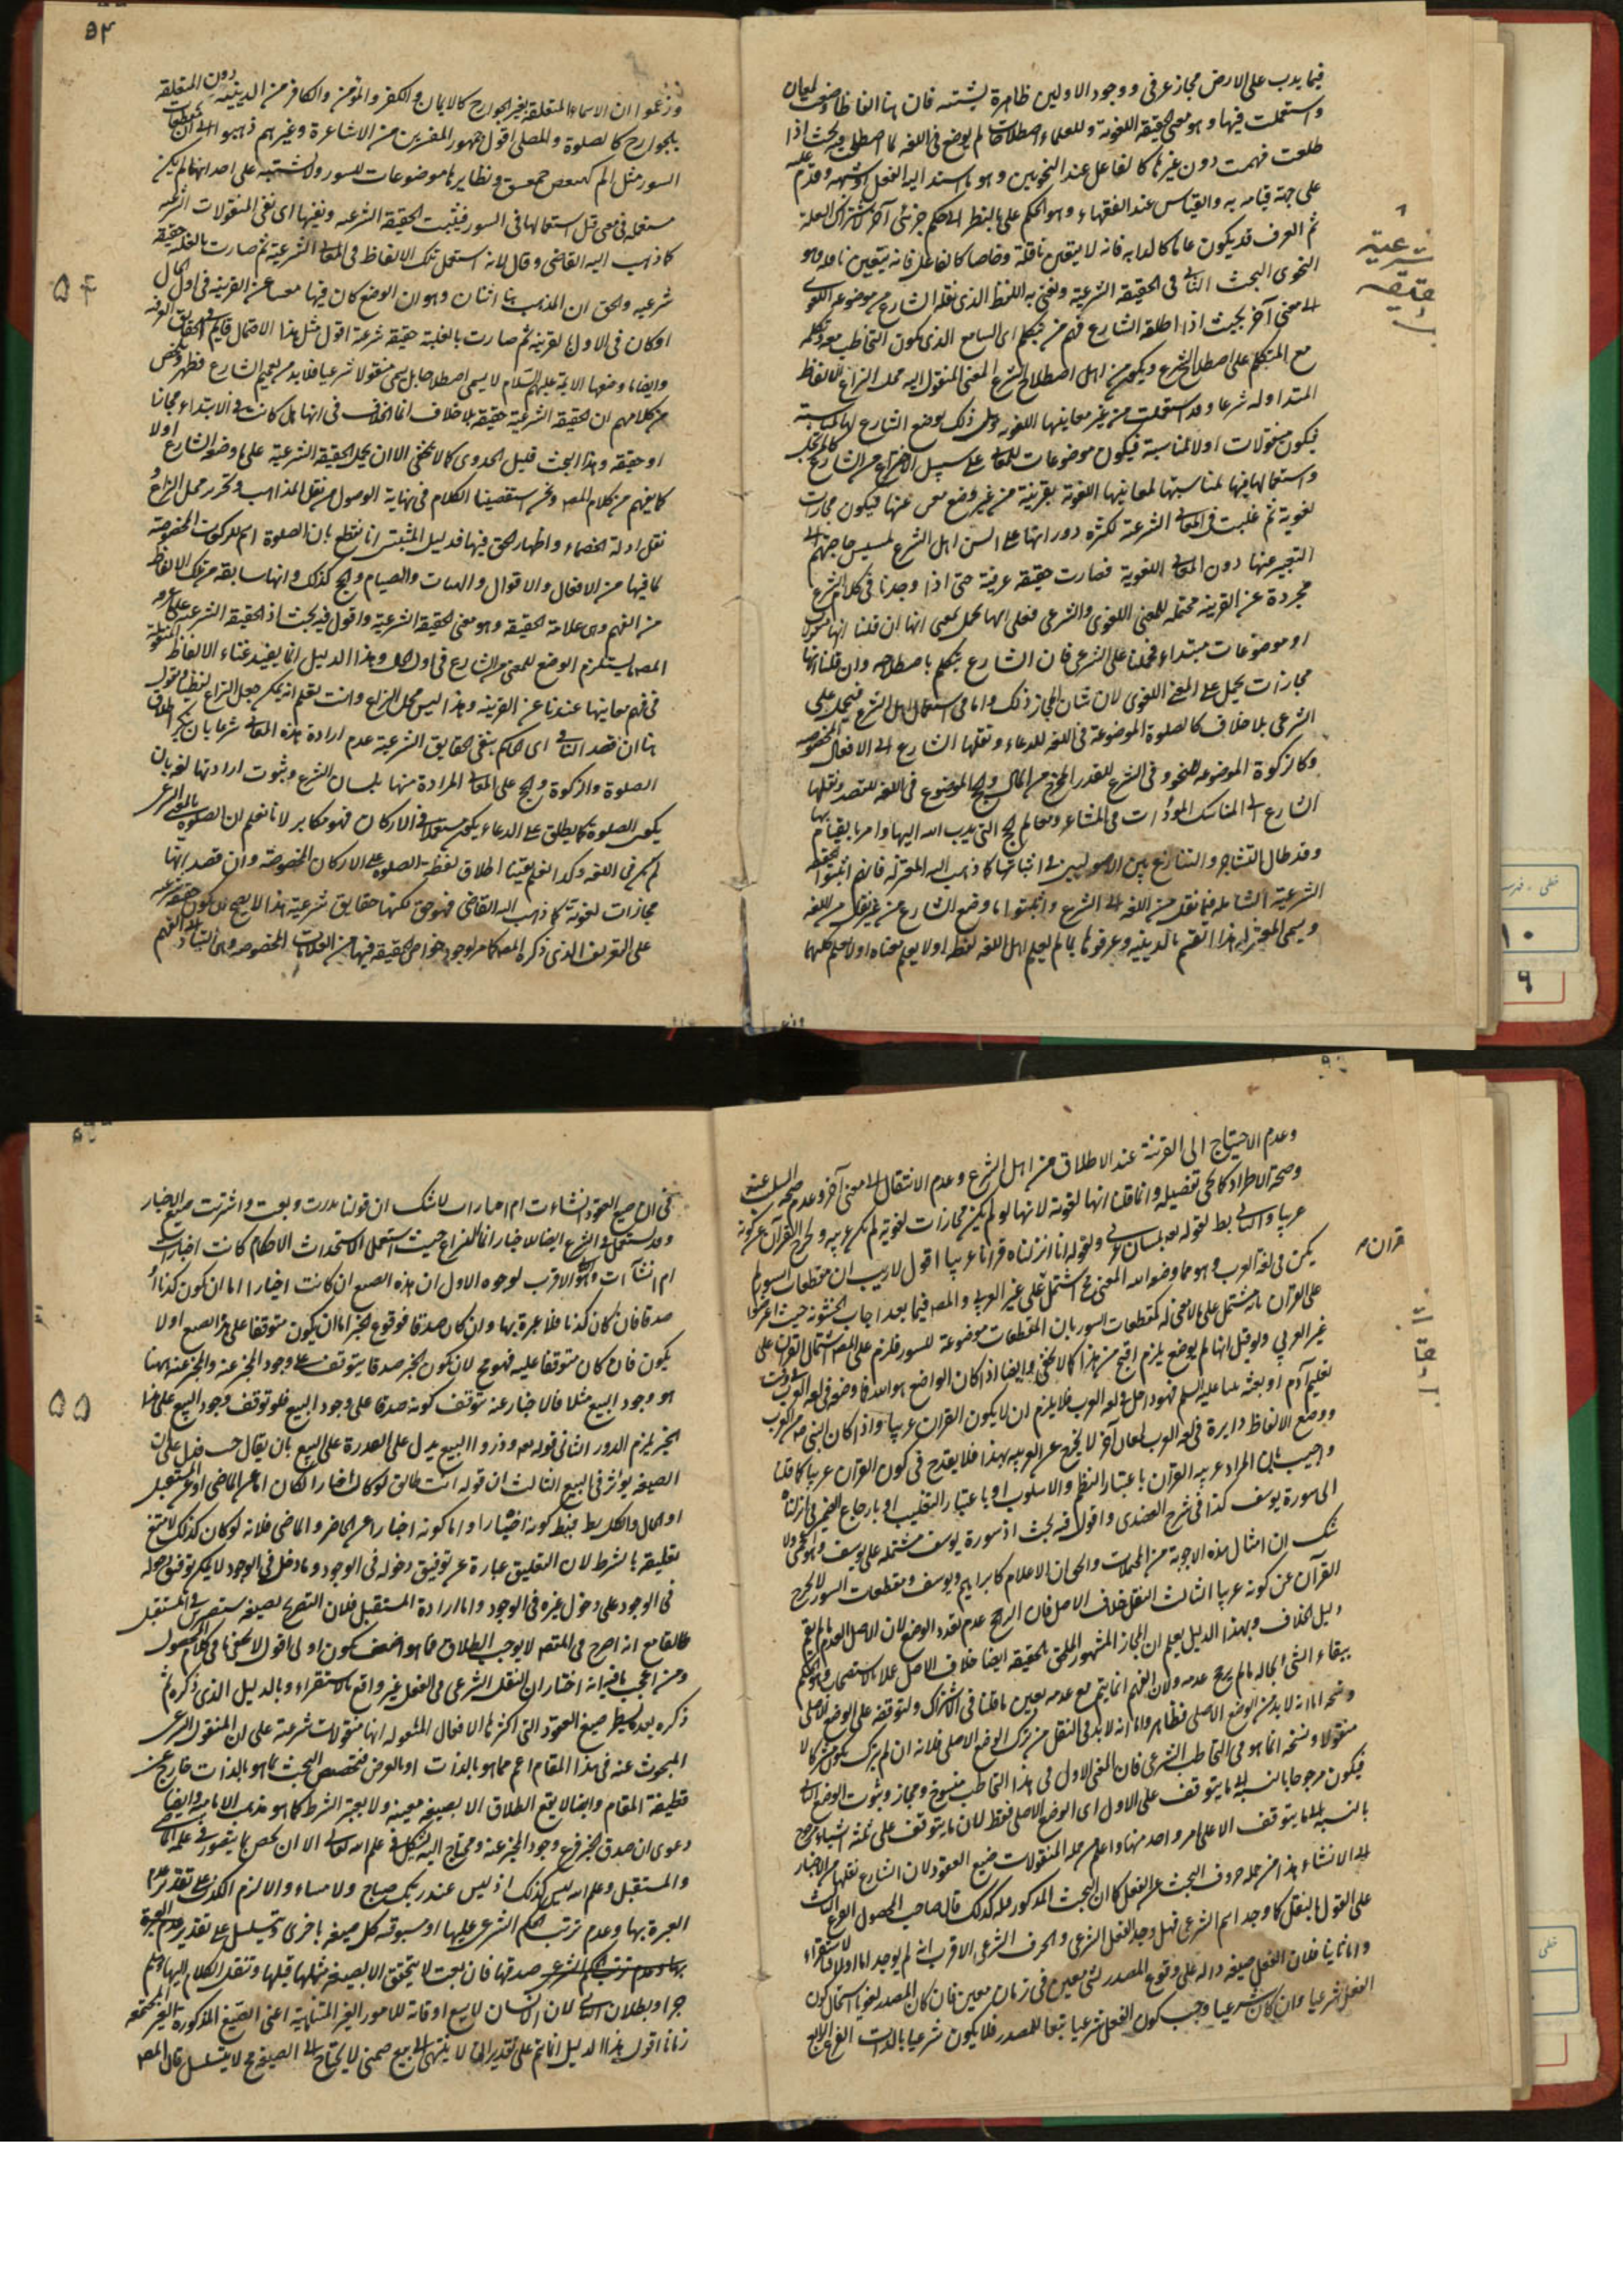 فيما يدب على الارض مجاز عرفى ووجود الاولين ظاهرة يشتبه فان هنا الفاظا وضعت لمعان
واستعملت فيها وهو معنى الحقيقة اللغوية وللعلماء اصطلاحات لم يوضع فى اللغه لما اصطلحوا بحيث اذا
طلعت فهمت دون غيرها كالفاعل عند النحويين وهو ما اسند اليه الفعل او شبهه وقدم عليه
على جهة قيامه به والقياس عند الفقهاء وهو الحكم على بالنظر الى حكم جزئى آخر لاشتراك العلة
ثم العرف قد يكون عاما كالدابه فانه لا يتعين ناقلة وخاصا كالفاعل فانه يتعين ناقله وهو
النحوى البحث الثانى فى الحقيقة الشرعية ونعنى به اللفظ الذى نقله الشارع من موضوعه اللغوى
الى معنى آخر بحيث اذا اطلقه الشارع فهم من يتكلم اى السامع الذى يكون التخاطب معه وتكلمه
مع المتكلم على اصطلاح الشرع ويكون من اهل اصطلاح الشرع المعنى المنقول اليه محل النزاع الالفاظ
المتداولة شرعا وقد استعملت من غير معانيها اللغوية وهل ذلك بوضع الشارع لها لمناسبة
فيكون منقولات اولا لمناسبة فيكون موضوعات للمعانى على سبيل الاختراع من الشارع كالمرتجل
واستعمالها فيها لمناسبتها لمعانيها اللغوية بقرينة من غير وضع معنى عنها فيكون مجازات
لغوية ثم غلبت فى المعانى الشرعية لكثرة دورانها على السن اهل الشرع لمسيس حاجتهم الى
التعبير عنها دون المعانى اللغوية فصارت حقيقة عرفية حتى اذا وجدنا فى كلام الشرع
مجردة عن القرينة محتملة للمعنى اللغوى والشرعى فعلى ايهما يحمل بمعنى انها ان قلنا انها منقولات
او موضوعات مبتداءه فحملنا على الشرعى فان الشارع يتكلم باصطلاحه وان قلنا انها
مجازات يحمل على المعنى اللغوى لان شان المجاز ذلك واما فى استعمال اهل الشرع فيحمل على
الشرعى بلا خلاف كالصلوة الموضوعة فى اللغة للدعاء ونقلها الشارع الى الافعال المخصوصه
وكالزكوة الموضوعه للنمو وفى الشرع للقدر المخرج من المال والحج الموضوع فى اللغه للقصد ونقلها
الشارع الى المناسك المؤدات فى المشاعر ومعالم الحج التى يدب الله اليها وامر بالقيام بها
وقد طال التشاجر والتنازع بين الاصوليين فى اثباتها كما ذهب اليه المعتزلة فانهم اثبتوا الحقيقة
الشرعية الشاملة فيما نقل من اللغة الى الشرع واثبتوا ما وضع الشارع عن غير نقل من اللغه
ويسمى المعتزلة هذا القسم بالدينية وعرفوها بما لم يعلم اهل اللغة لفظه او لا يعلم معناه او لا يعلم كليهما
شرعية
حقيقة
٥٤
وزعموا ان الاسماء المتعلقة بغير الجوارح كالايمان والكفر والمؤمن والكافر من الدينية دون المتعلقة
بالجوارح كالصلوة والمصلى اقول جمهور المفسرين من الاشاعرة وغيرهم ذهبوا الى ان مقطعات
السور مثل الم كهيعص حمعسق ونظايرها موضوعات للسور ولا يشتبه على احد انها لم يكن
مستعمله فى معنى قبل استعمالها فى السور فيثبت الحقيقة الشرعيه ونفيها اى نفى المنقولات الشرعيه
كما ذهب اليه القاضى وقال لانه استعمل تلك الالفاظ فى المعانى الشرعية ثم صارت بالغلبه حقيقه
شرعيه والحق ان المذهب هنا اثنان وهو ان الوضع كان فيها عن القرينه فى اول الحال
او كان فى الاول بالقرينه ثم صارت بالغلبة حقيقة شرعية اقول مثل هذا الاحتمال قايم فى الحقايق العرفيه
وايضا ما وضعها الاية عليهم السلام لا يسمى اصطلاحا بل يسمى منقولا شرعيا فلا بد من تعميم الشارع فظهر ولخص
من كلامهم ان الحقيقة الشرعية حقيقة بلا خلاف انما الخلاف فى انها هل كانت فى الابتداء مجازا
او حقيقه وهذا البحث قليل الجدوى كما لا يخفى الا ان يحمل الحقيقة الشرعية على ما وضعه الشارع اولا
كما يفهم من كلام المصـ ونحن استقصينا الكلام فى نهاية الوصول من نقل المذاهب وتحرير محل النزاع و
نقل ادلة الخصماء واظهار الحق فيها فدليل المثبتين انا نقطع بان الصلوة اسم للركعات المخصوصة
بما فيها من الافعال والاقوال والهيئات والصيام والحج كذلك وانها سابقه من تلك الالفاظ
من الفهم وهى علامة الحقيقة وهو معنى الحقيقة الشرعية واقول فيه بحث اذ الحقيقة الشرعيه على
المصـ يستلزم الوضع للمعنى من الشارع فى اول الحال وهذا الدليل انما يفيد غناء الالفاظ المنقولة
فى فهم معانيها عندنا عن القرينه وهذا ليس محل النزاع وانت تعلم انه يمكن جعل النزاع لفظيا نقول
هنا ان قصد النافى اى الحاكم بنفى الحقايق الشرعية عدم ارادة هذه المعانى شرعا بان ينكر اطلاق
الصلوة والزكوة والحج على المعانى المرادة منها بلسان الشرع وثبوت ارادتها لغه بان
يكون الصلوة كما يطلق على الدعاء يكون مستعملا فى الاركان فهو مكابر لانا نعلم ان الصلوة بالمعنى الشرعى
لم يكن فى اللغه وكذا نعلم يقينا اطلاق لفظة الصلوة على الاركان المخصوصة وان قصد انها
مجازات لغوية كما ذهب اليه القاضى فهو حق لكنها حقايق شرعية هذا لا يصح ان يكون حقيقة شرعيه
على التعريف الذى ذكره المصـ كما مر لوجود خواص الحقيقة فيها من العلامات المخصوصه وهى التبادر الى الفهم
٥٤
وعدم الاحتياج الى القرينة عند الاطلاق من اهل الشرع وعدم الانتقال الى معنى آخر وعدم صحة السلب عنه
وصحة الاطراد كما يجى تفصيله وانما قلنا انها لغوية لانها لو لم يكن مجازات لغوية لم يكن عربيه ولخرج القرآن عن كونه
عربيا والتالى بط لقوله تعه بلسان عربى ولقوله انا انزلناه قرانا عربيا اقول لا ريب ان مقطعات السور لم
يكن فى لغة العرب وهو مما وضعه الله المعنى مح اشتمل على غير العربى والمصـ فيما بعد اجاب الحشوية حيث اعترضوا
على القرآن بانه مشتمل على ما لا معنى له كمقطعات السور بان المقطعات موضوعة للسور فلزم على المصـ اشتمال القرآن على
غير العربى ولو قيل انها لم يوضع يلزم اقبح من هذا كما لا يخفى وايضا اذا كان الواضع هو الله فما وضعه فى لغه العرب فى وقت
تعليم آدم او بعثه نبينا عليه السلم فهو داخل فى لغه العرب فلا يلزم ان لا يكون القران عربيا واذا كان النبى صـ من العرب
ووضع الالفاظ دايرة فى لغه العرب لمعان آخر لا يخرج عن العربيه بهذا فلا يقدح فى كون القرآن عربيا كما قلنا
واجيب بان المراد عربيه القرآن باعتبار النظم والاسلوب او باعتبار التغليب او بارجاع الضمير فى انزلناه
الى سورة يوسف كذا فى شرح العضدى واقول فيه بحث اذ سورة يوسف مشتمله على يوسف وهو عجمى ولا
شك ان امثال هذه الاجوبة من المحملات والحق ان الاعلام كابراهيم ويوسف ومقطعات السور لا يخرج
القرآن عن كونه عربيا الثالث النقل خلاف الاصل فان الراجح عدم تعدد الوضع لان الاصل العدم ما لم يقم
دليل الخلاف وبهذا الدليل يعلم ان المجاز المشهور الملحق بالحقيقه ايضا خلاف الاصل عملا بالاستصحاب وهو الحكم
ببقاء الشئ بحاله ما لم يرجح عدمه ولان الفهم انما يتم مع عدمه بعين ما قلنا فى الاشتراك ولتوقفه على الوضع الاصلى
ونسخه اما انه لا بد من الوضع الاصلى فظاهر واما انه لا بد فى النقل من ترك الوضع الاصلى فلانه ان لم يترك يكون مشتركا لا
منقولا ونسخه انما هو فى التخاطب الشرعى فان المعنى الاول فى هذا التخاطب منسوخ ومجاز وثبوت الوضع الثانى
فيكون مرجوحا بالنسبة الى ما يتوقف على الاول اى الوضع الاصلى فقط لان ما يتوقف على ثلثه اشياء مرجوح
بالنسبه الى ما يتوقف الا على امر واحد منها واعلم من جملة المنقولات صيغ العقود لان الشارع نقلها من الاخبار
الى الانشاء هذا من جمله حروف البحث عن الفعل كما ان البحث المذكور قبله كذلك قال صاحب المحصول الفرع الثالث
على القول بالنقل كما وجد اسم الشرعى فهل وجد الفعل الشرعى والحرف الشرعى الاقرب انه لم يوجد اما اولا فالاستقراء
واما ثانيا فلان الفعل صيغه داله على وقوع المصدر لشئ معين فى زمان معين فان كان المصدر لغويا استحال كون
الفعل شرعيا وان كان شرعيا وجب كون الفعل شرعيا تبعا للمصدر فلا يكون شرعيا بالذات الفرع الرابع
قران
٥٥
فى ان صيغ العقود انشاءت ام اخبارات لا شك ان قولنا نذرت وبعت واشتريت صيغ الاخبار
وقد يستعمل فى الشرع ايضا للاخبار انما النزاع حيث استعمل لاستحداث الاحكام كانت اخبارات
ام انشاآت وهو الاقرب لوجوه الاول ان هذه الصيغ ان كانت اخبارا اما ان يكون كذبا او
صدقا فان كان كذبا فلا عبرة بها وان كان صدقا فوقوع المخبر اما ان يكون متوقفا على هذه الصيغ او لا
يكون فان كان متوقفا عليه فهو مح لان كون الخبر صدقا يتوقف على وجود المخبر عنه والمخبر عنه هنا
هو وجود البيع مثلا فالاخبار عنه يتوقف كونه صدقا على وجود البيع فلو توقف وجود البيع على هذا
الخبر لزم الدور الثانى قوله تعه وذروا البيع يدل على القدرة على البيع بان يقال حسب فدل على ان
الصيغه يؤثر فى البيع الثالث ان قوله انت طالق لو كان اخبارا لكان اما عن الماضى او عن المستقبل
او الحال والكل بط فبطل كونه اخبارا واما كونه اخبارا عن الحاضر والماضى فلانه لو كان كذلك لامتنع
تعليقه بالشرط لان التعليق عبارة عن توقيف دخوله فى الوجود وما دخل فى الوجود لا يمكن توقيف دخوله
فى الوجود على دخول غيره فى الوجود واما ارادة المستقبل فلان التصريح بصيغه ستصيرين فى المستقبل
طالقا مع انه اصرح فى المقصـ لا يوجب الطلاق فما هو اضعف يكون اولى اقول لا يخفى ما فى كلام المحصول
ومن اعجب ما فيه انه اختار ان النقل الشرعى فى الفعل غير واقع بالاستقراء وبالدليل الذى ذكره ثم
ذكره بعد سطر صيغ العقود التى اكثرها الافعال المنقوله انها منقولات شرعية على ان المنقول الشرعى
المبحوث عنه فى هذا المقام اعم مما هو بالذات او بالعرض فتخصيص البحث بما هو بالذات خارج عن
وظيفة المقام وايضا لا يقع الطلاق الا بصيغه معينه ولا يعتبر الشرط كما هو مذهب الامامية وايضا
دعوى ان صدق الخبر فرع وجود المخبر عنه ومحتاج اليه يشكل فى علم الله تعالى الا ان يخص بما يتصور فى علمه الماضى
والمستقبل وعلم الله ليس كذلك اذ ليس عند ربك صباح ولا مساء والا لزم الكذب على تقدير عدم
العبرة بها وعدم ترتب الحكم الشرعى عليها او مسبوقية كل صيغه باخرى وتسلسل على تقدير عدم العبرة
بها وعدم ترتب الحكم الشرعى صدقها فان بعت لا يتحقق الا بصيغه مثلها قبلها وننقل الكلام اليها وهلم
جرا وبطلان التالى لان الانسان لا يسع اوقاته للامور الغير المتناهية اعنى الصيغ المذكورة الغير المجتمعه
زمانا اقول هذا الدليل انما يتم على تقدير ان لا ينتهى الى بيع ضمنى لا يحتاج الى الصيغه مح لا يتسلسل قال المصـ